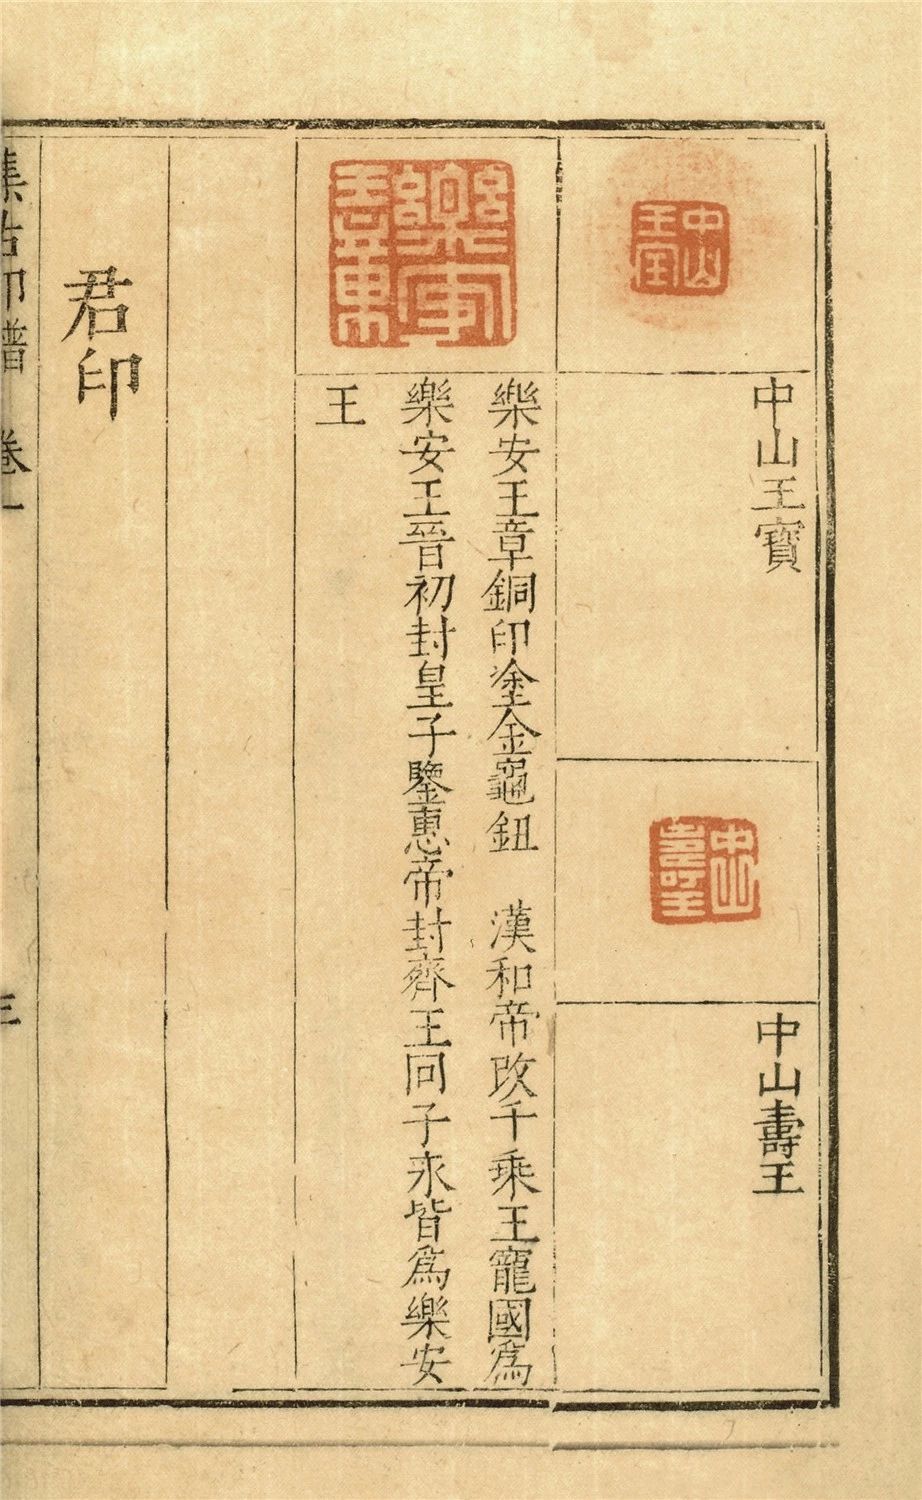 中山王寶
中山壽王
樂安王章銅印塗金龜鈕　漢和帝改千乘王寵國爲
樂安王晉初封皇子鑒惠帝封齊王冏子氷皆爲樂安
王
君印
集古印譜 卷一 三